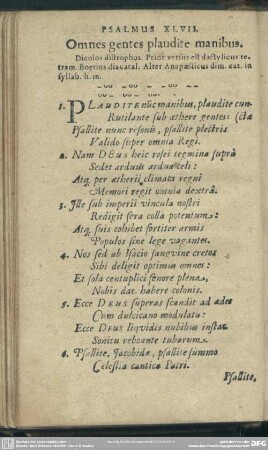 PSALMUS XLVII.
Omnes gentes plaudite manibus.
Dicolos distrophos. Prior versus est dactylicus te-
tram. Boetius diacatal. Alter Anapæsticus dim. cat. in
syllab. h. m.
1. PLAUDITE nūc manibus, plaudite cun-
Rutilante sub æthere gentes: (ctæ
Psallite nunc resonis, psallite plectris
Valido super omnia Regi.
2. Nam DEus heic rosei tegmina suprà
Sedet arduus ardua cœli:
Atq; per ætherii climata regni
Memori regit omnia dextrâ.
3. Ille sub imperii vincula nostri
Redigit fera colla potentum:
Atq; suis cohibet fortiter armis
Populos sine lege vagantes.
4. Nos sed ab Isacio sanguine cretos
Sibi deligit optimus omnes:
Et sola centuplici fenore plena,
Nobis dat habere colonis.
5. Ecce DEUS superas scandit ad ædes
Cum dulcicano modulatu:
Ecce DEUS liqvidis nubibus instat
Sonitu reboante tubarum.
6. Psallite, Jacobidæ, psallite summo
Celestia cantica Patri.
Psallite,